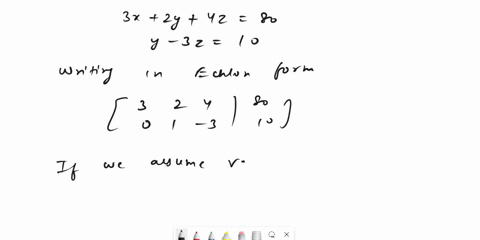 3x + 2y + 4z = 80
y - 3z = 10
Writing in Echlon form
[ 3 2 4 | 80
0 1 -3 | 10 ]
If we assume v